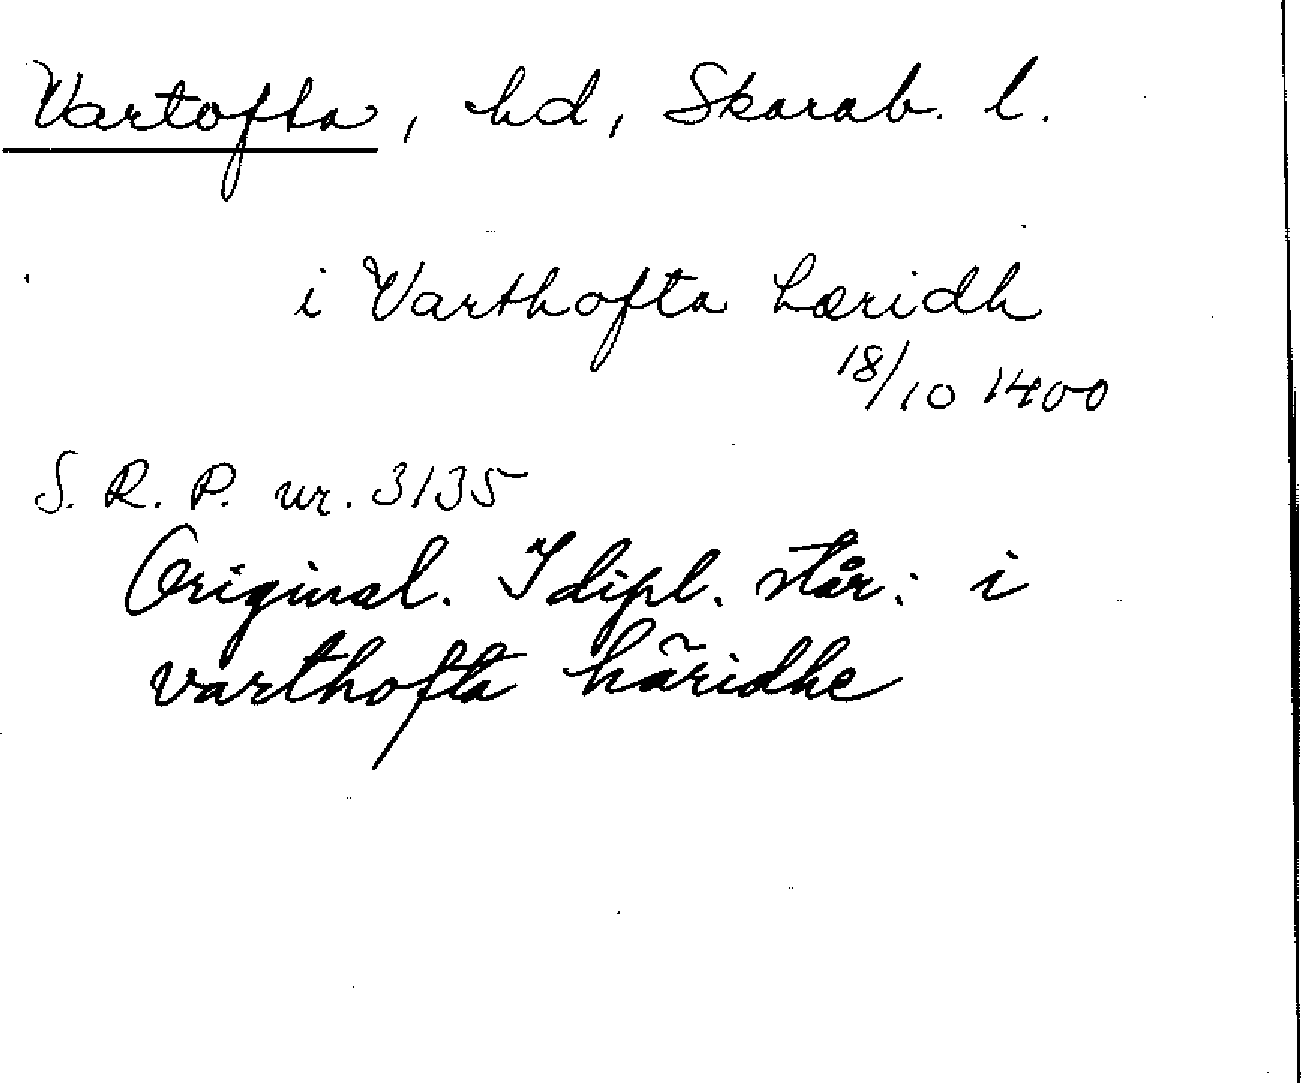 Vartofta, hd, Skarab. l.
i Varthofta hæridh
18/10 1400
S. R. P. nr. 3135
Original. I dipl. står: i
varthofta hãridhe